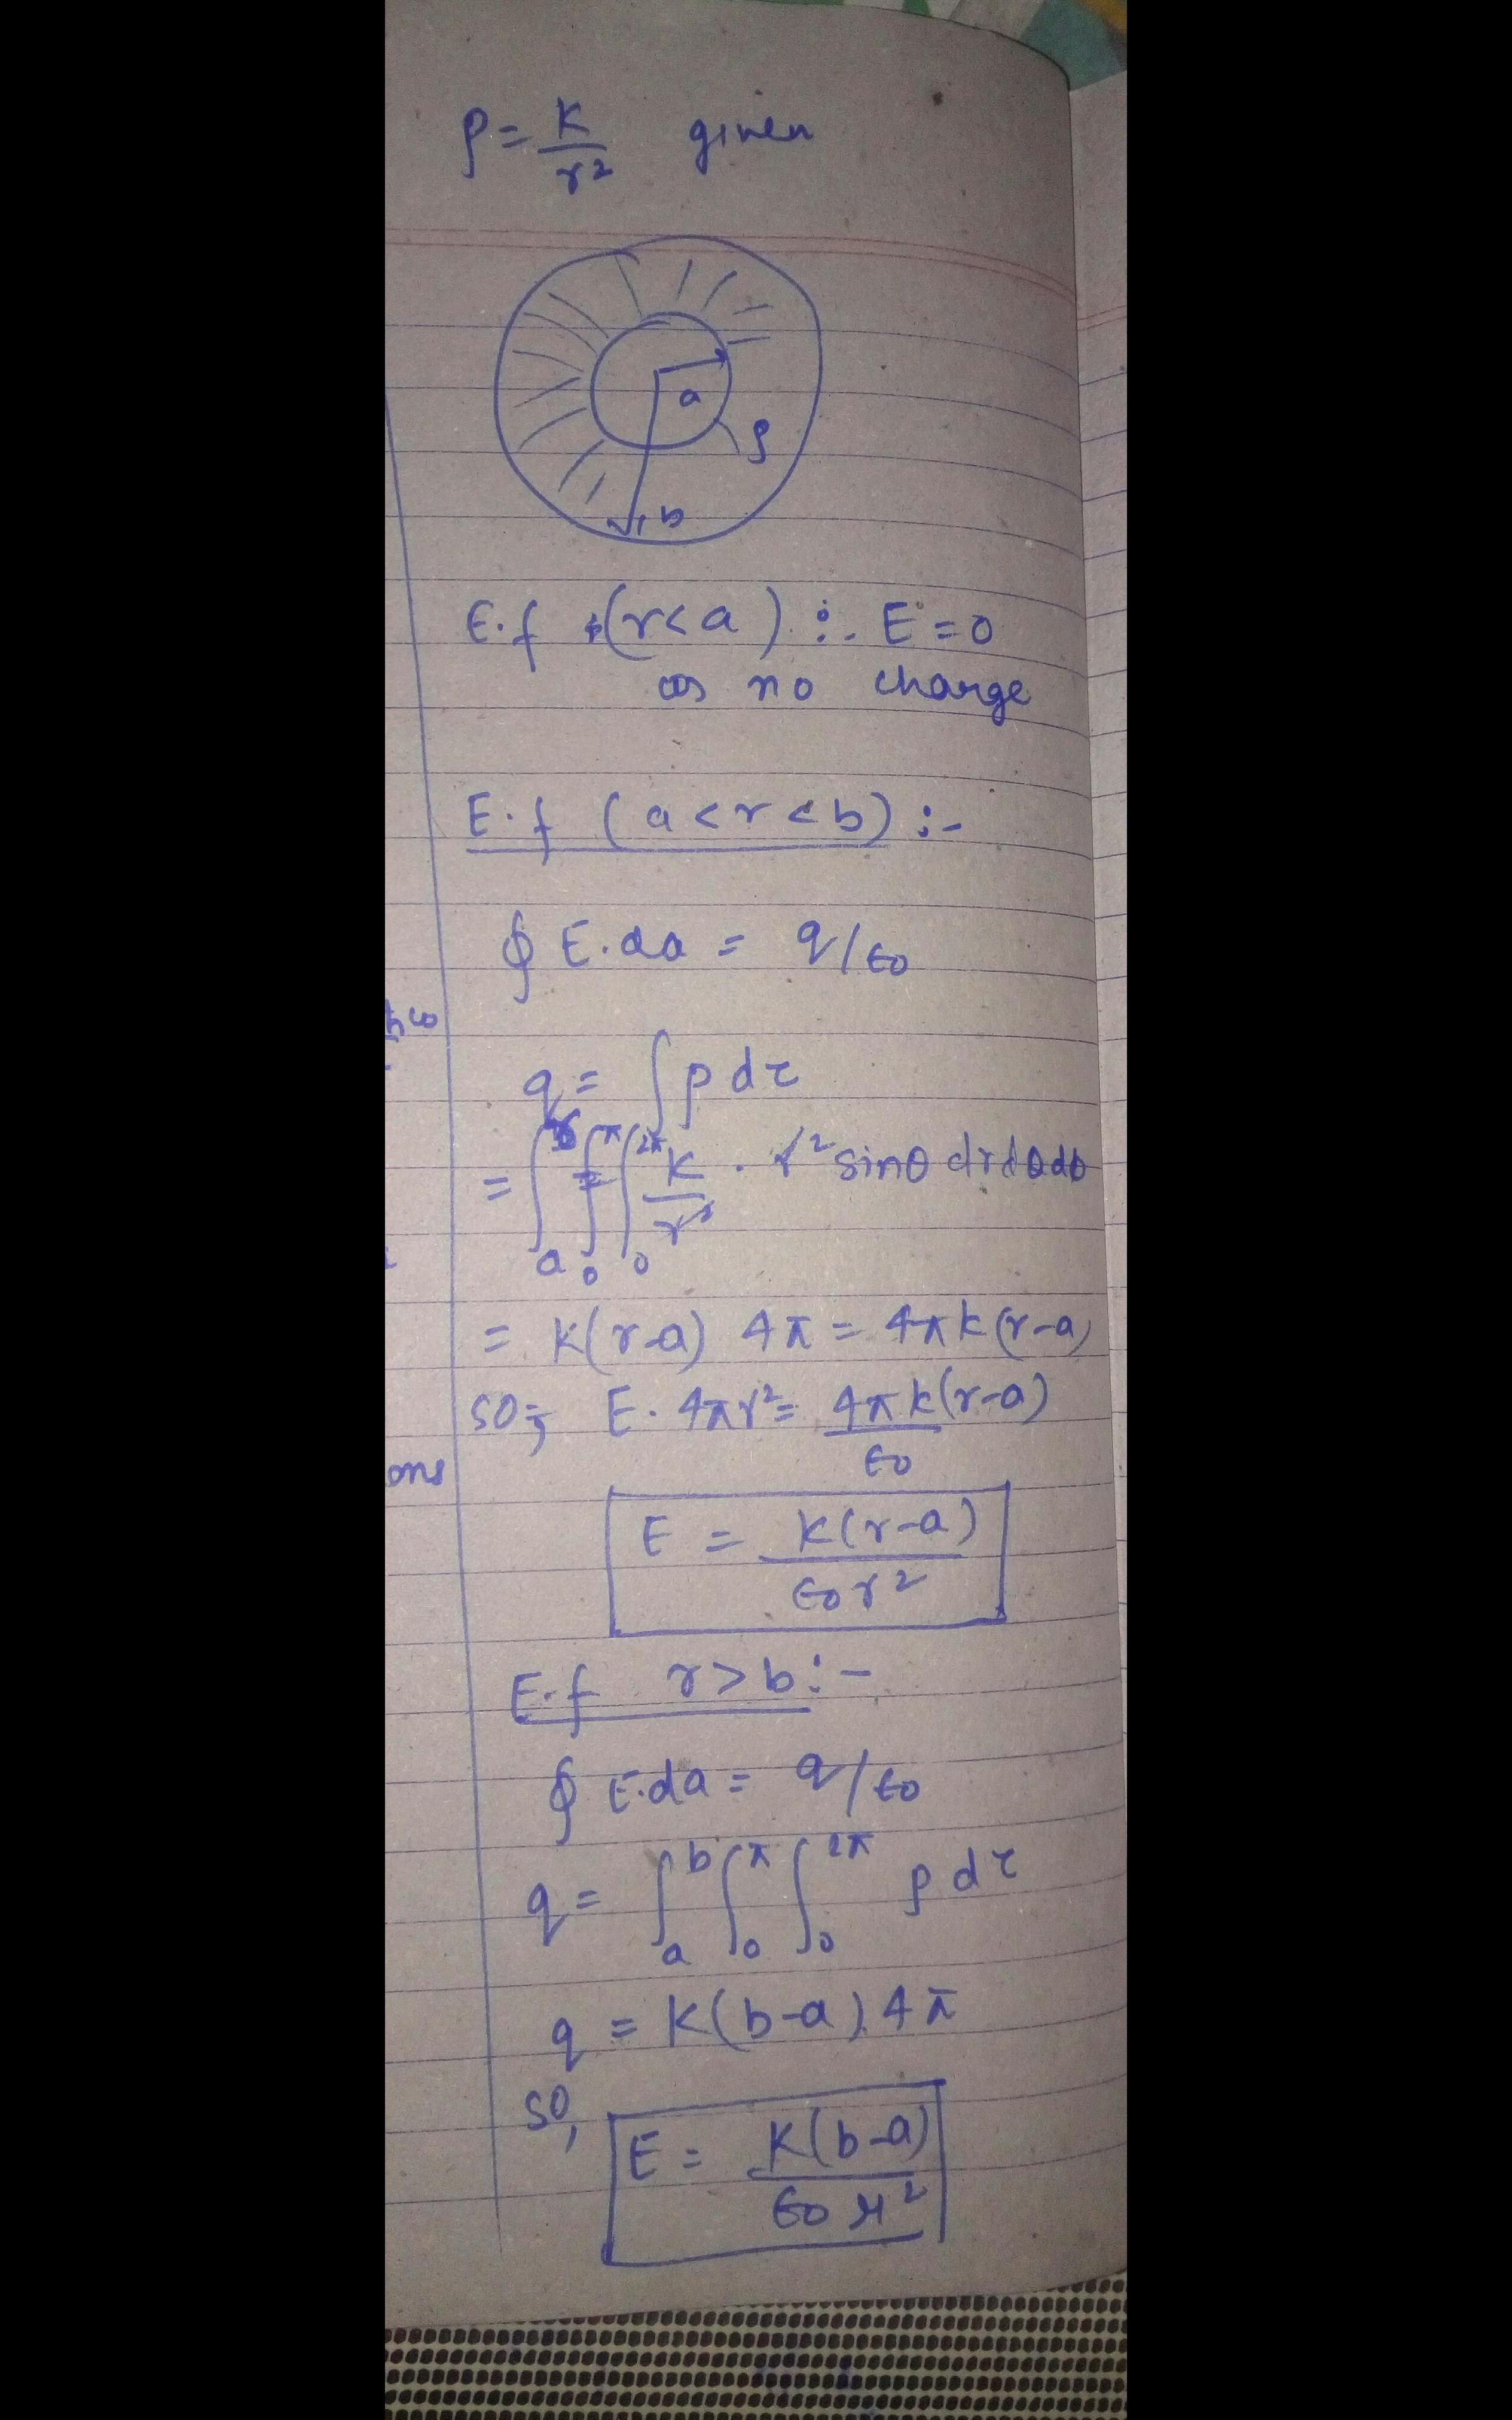 ρ = K/r² given
a
ρ
b
E.f (r<a) :. E = 0
as no charge
E.f (a<r<b) :-
∮ E.da = q/ε0
q = ∫ρ dτ
= ∫ₐʳ ∫₀^π ∫₀^2π K/r² . r² sinθ dr dθ dϕ
= K(r-a) 4π = 4πk(r-a)
so, E. 4πr² = 4πk(r-a)/ε0
ons
E = K(r-a)/ε0r²
E.f r>b :-
∮ E.da = q/ε0
q = ∫ₐᵇ ∫₀^π ∫₀^2π ρ dτ
q = K(b-a).4π
so,
E = K(b-a)/ε0 r²